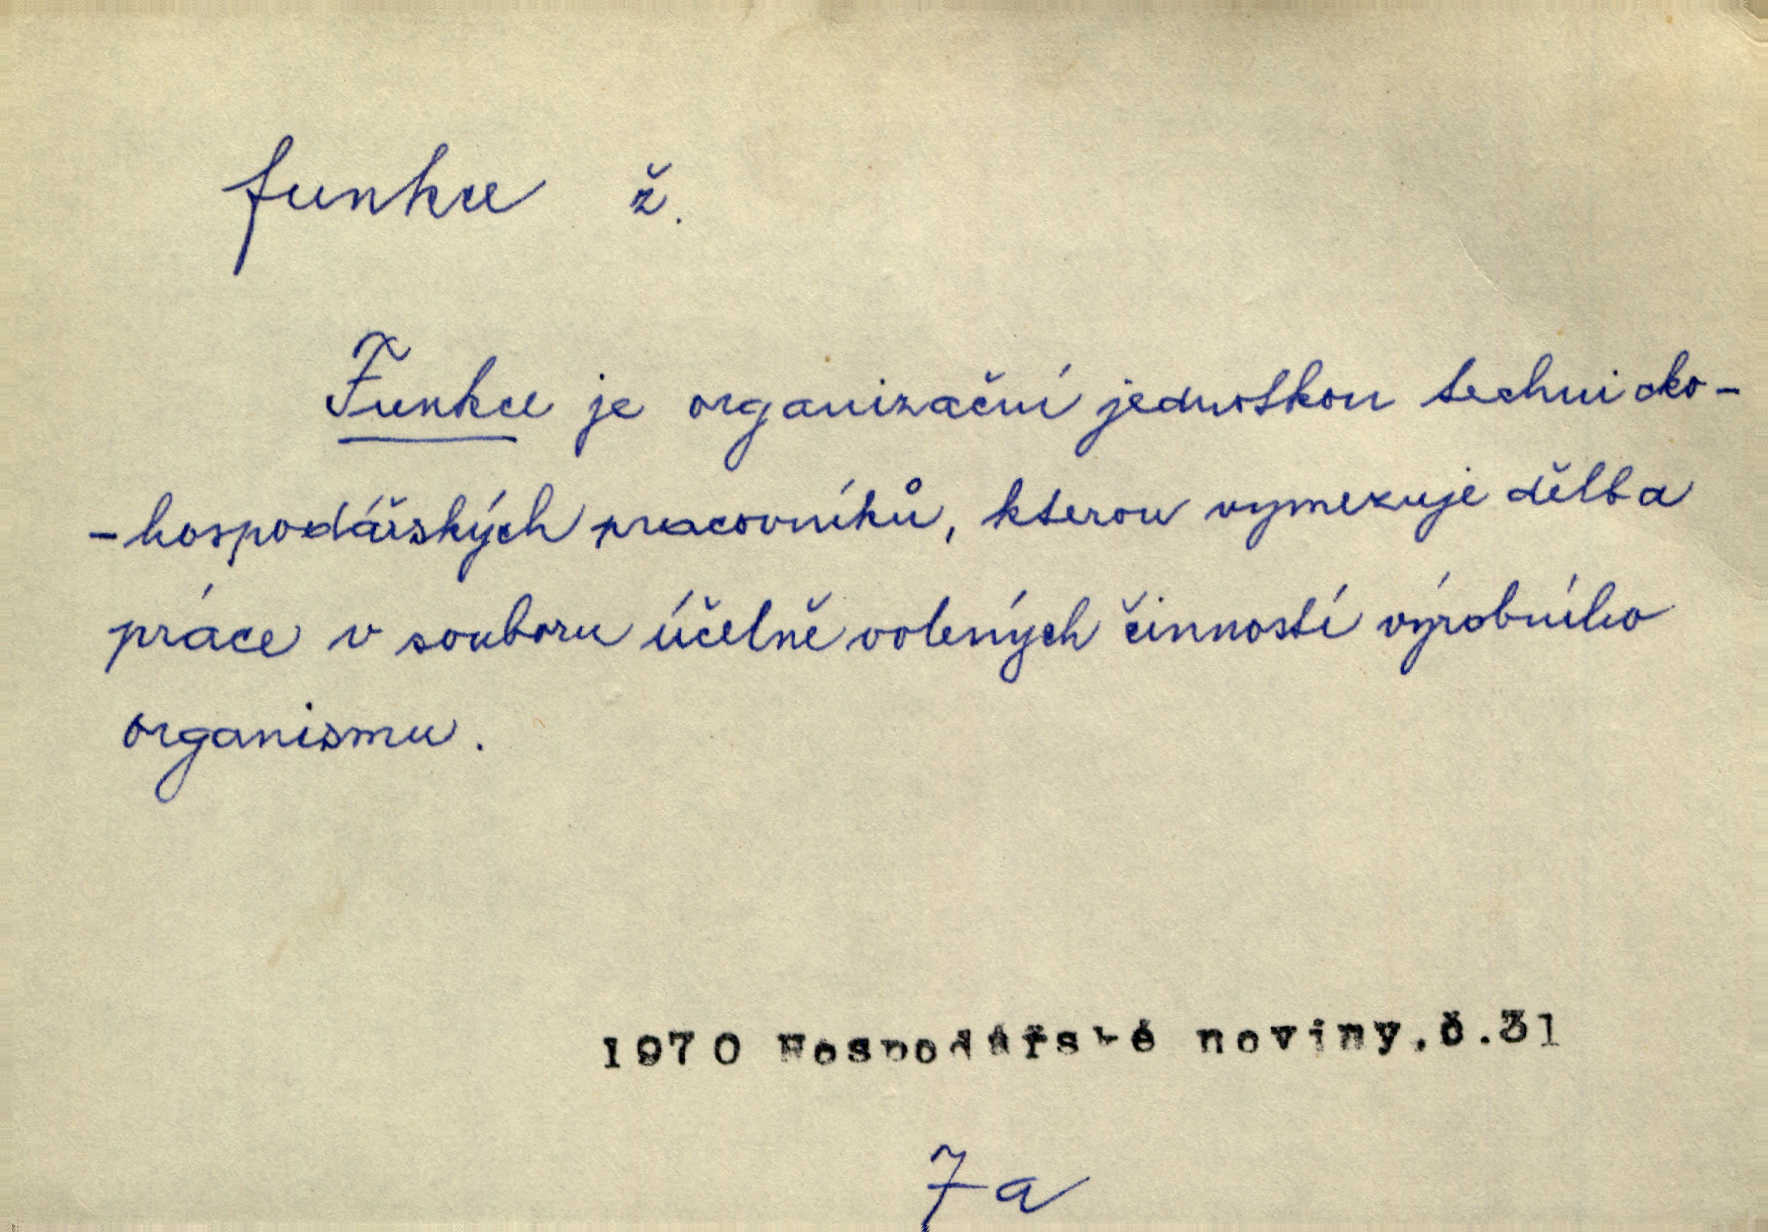 funkce ž.
Funkce je organizační jednotkou technicko-
-hospodářských pracovníků, kterou vymezuje dělba
práce v souboru účelně volených činností výrobního
organismu.
1970 Hospodářské noviny,č.31
7a